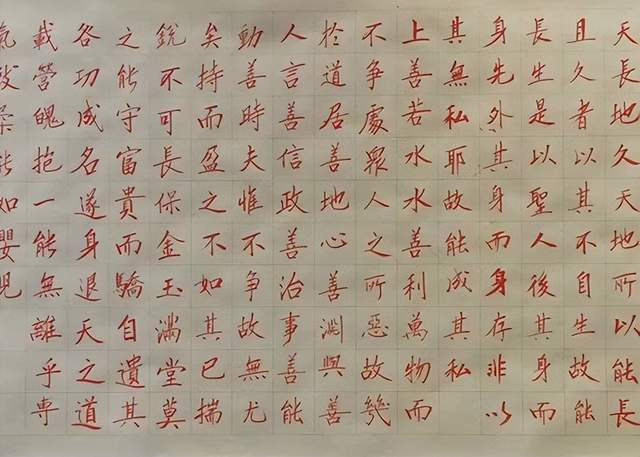 天長地久天地所以能長
且久者以其不自生故能
長生是以聖人後其身而
身先外其身而身存非以
其無私耶故能成其私
上善若水水善利萬物而
不爭處衆人之所惡故幾
扵道居善地心善淵與善
人言善信政善治事善能
動善時夫惟不爭故無尤
矣持而盈之不如其已揣
銳不可長保金玉滿堂莫
之能守富貴而驕自遺其
各功成名遂身退天之道
載營魄抱一能無離乎專
氣致柔能如嬰兒